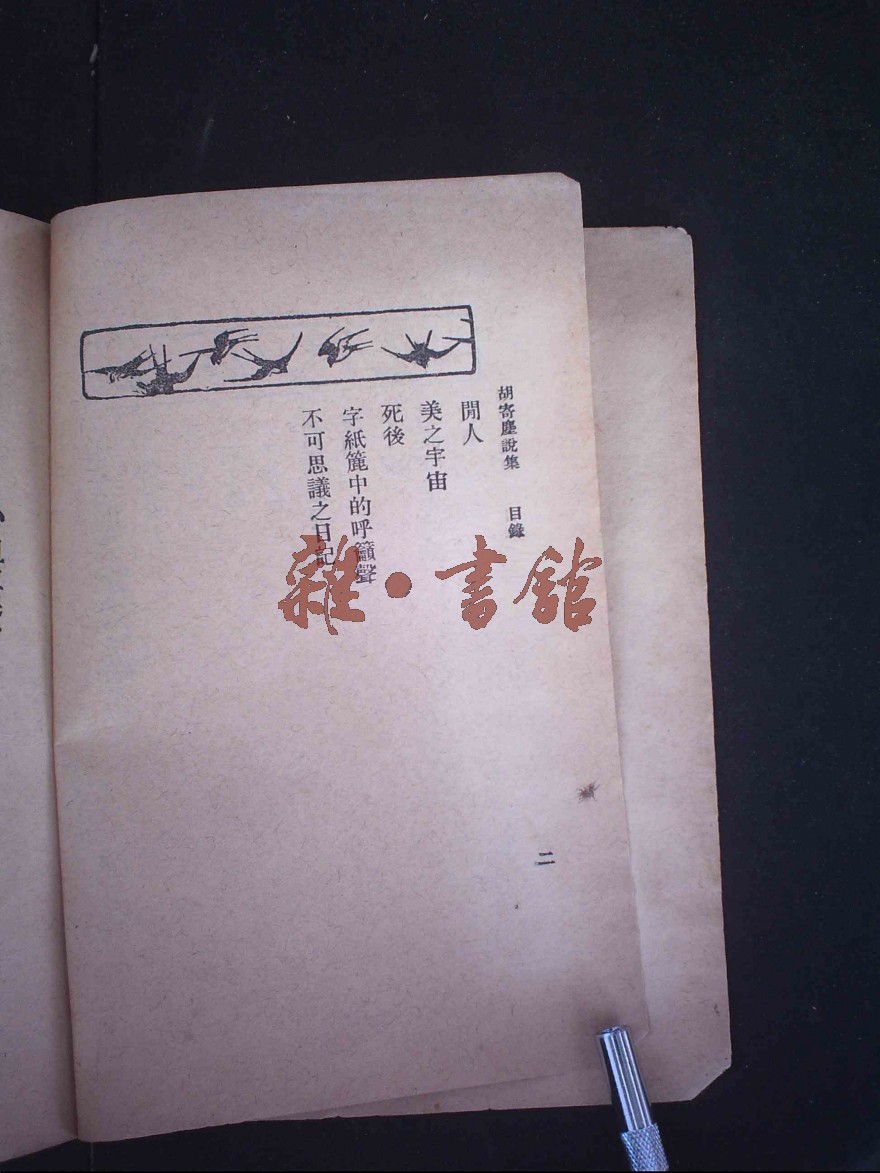 胡寄塵說集 目錄
閒人
美之宇宙
死後
字紙簏中的呼籲聲
不可思議之日記
二
雜·書館